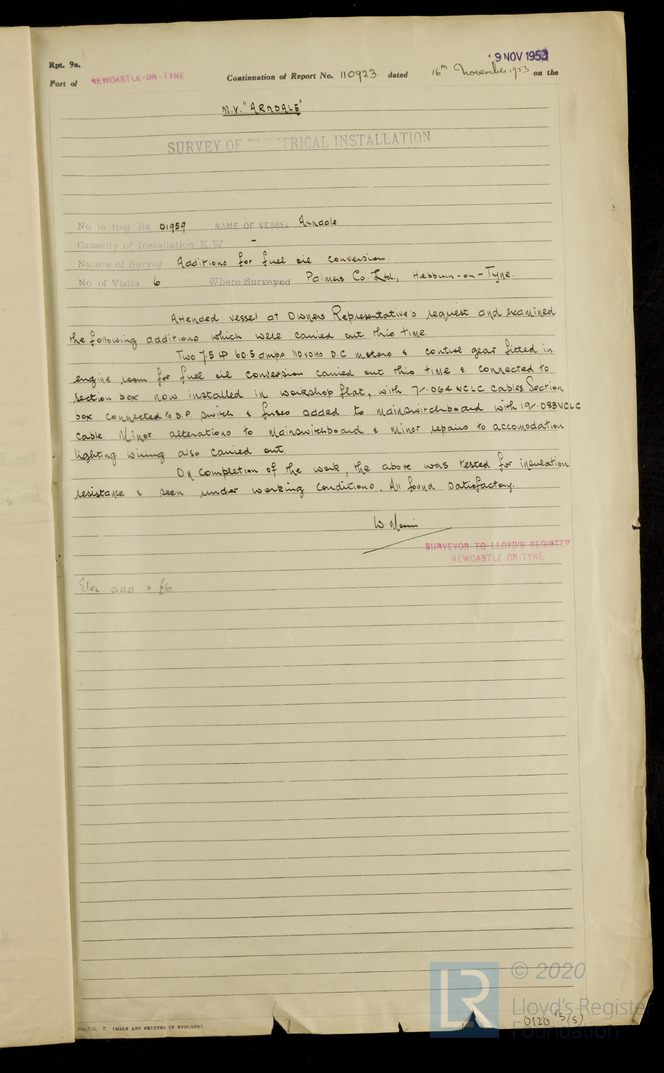 Rpt. 9a.
9 NOV 1953
Port of NEWCASTLE-ON-TYNE Continuation of Report No. 110923 dated 16th November 1953 on the
M.V. "ARNDALE"
SURVEY OF ELECTRICAL INSTALLATION
No in Reg Bk 01959 NAME OF VESSEL Arndale
Capacity of Installation K.W. -
Nature of Survey Additions for fuel oil conversion
No of Visits 6 Where Surveyed Palmers Co. Ltd, Hebburn-on-Tyne.
Attended vessel at Owners Representative's request and examined
the following additions which were carried out this time.
Two 7.5 HP 60.5 amps 110 volts D.C motors & control gear fitted in
engine room for fuel oil conversion carried out this time & connected to
section box now installed in workshop flat, with 7/.064 VCLC cables Section
box connected to D.P switch & fuses added to mainswitchboard with 19/.083 VCLC
cable Minor alterations to Mainswitchboard & Minor repairs to accomodation
lighting wiring also carried out.
On completion of the work, the above was tested for insulation
resistance & seen under working conditions. All found satisfactory.
W
SURVEYOR TO LLOYD'S REGISTER
NEWCASTLE-ON-TYNE
Elec. add = £6
(MADE AND PRINTED IN ENGLAND)
0126 (5/5)
LR
© 2020
Lloyd's Register
Foundation